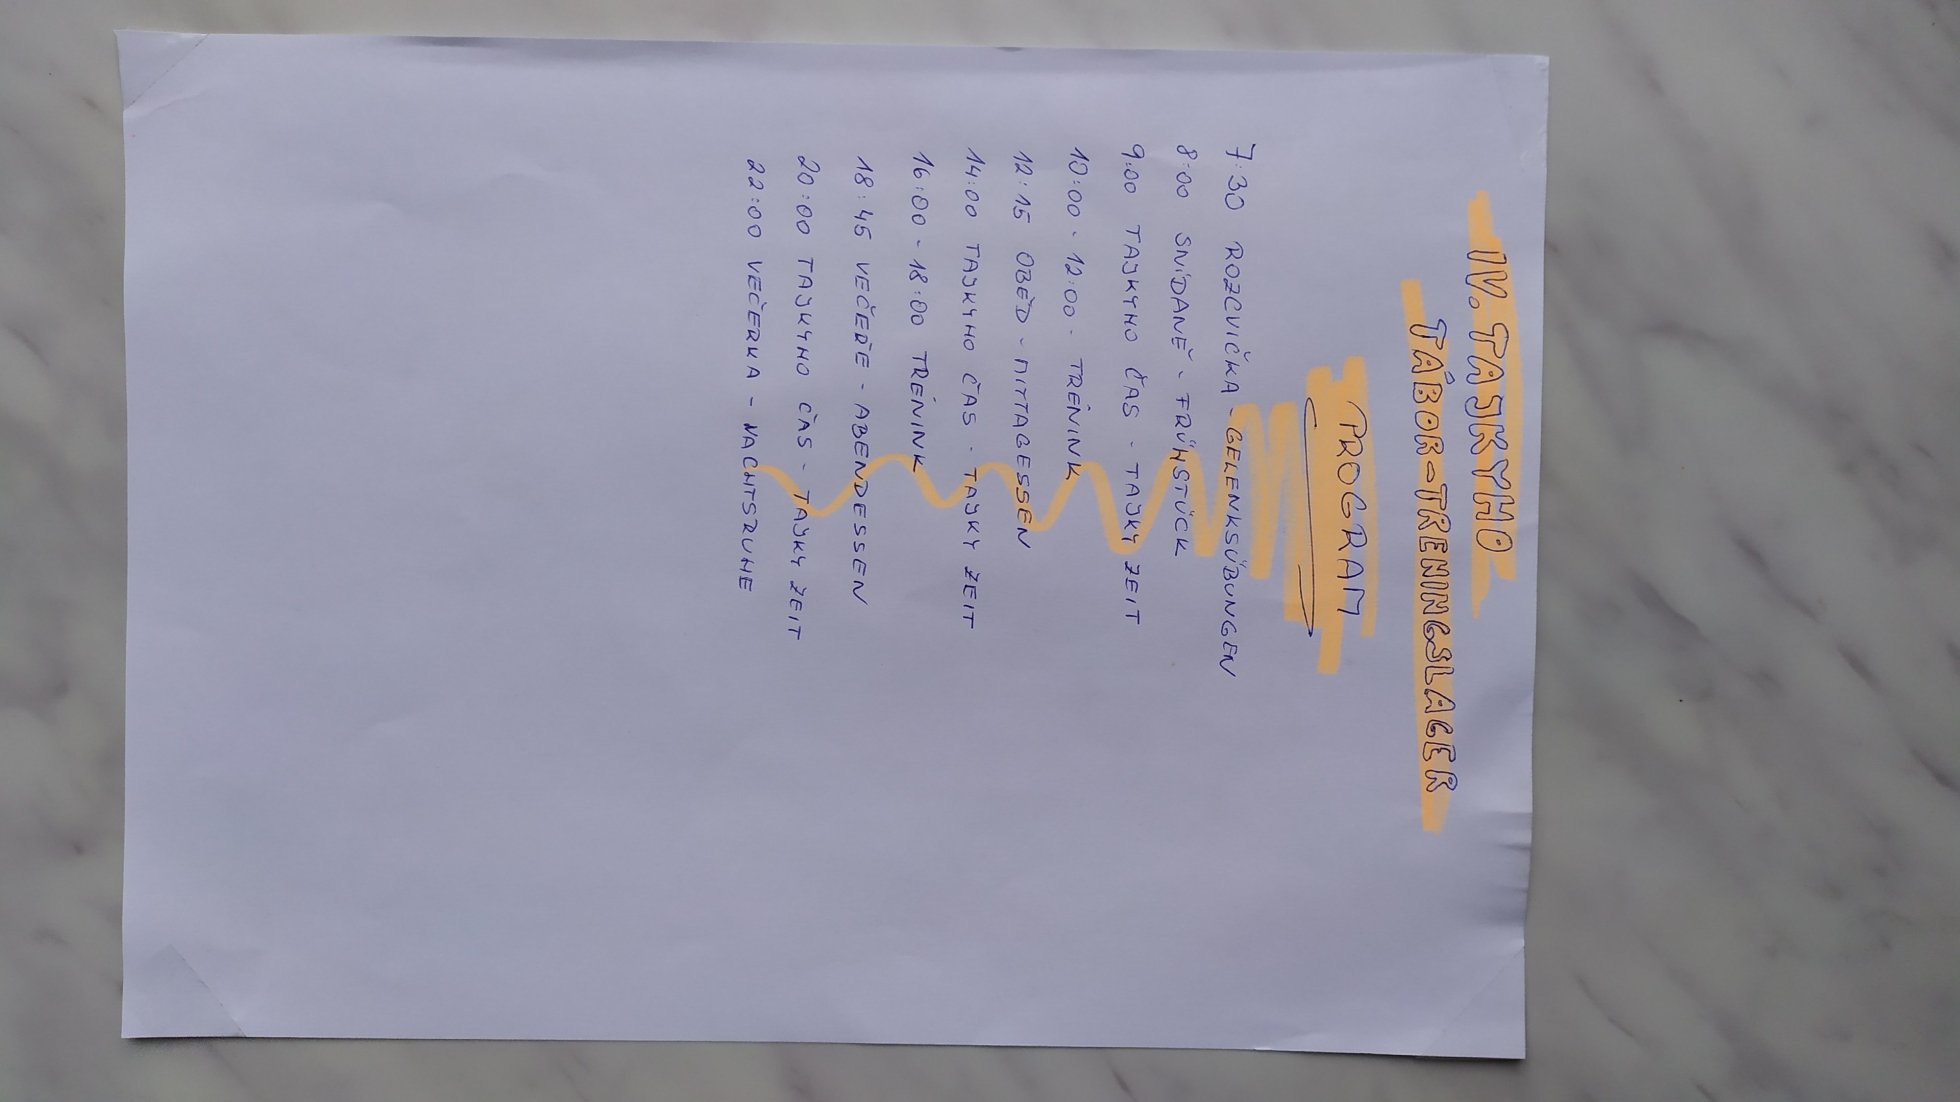 IV. TAJKYHO
TÁBOR-TRENINGSLAGER
PROGRAM
7:30 ROZCVIČKA - GELENKSÜBUNGEN
8:00 SNÍDANĚ - FRÜHSTÜCK
9:00 TAJKYHO ČAS - TAJKY ZEIT
10:00 - 12:00 - TRÉNINK
12:15 OBĚD - MITTAGESSEN
14:00 TAJKYHO ČAS - TAJKY ZEIT
16:00 - 18:00 TRÉNINK
18:45 VEČEŘE - ABENDESSEN
20:00 TAJKYHO ČAS - TAJKY ZEIT
22:00 VEČERKA - NACHTSRUHE